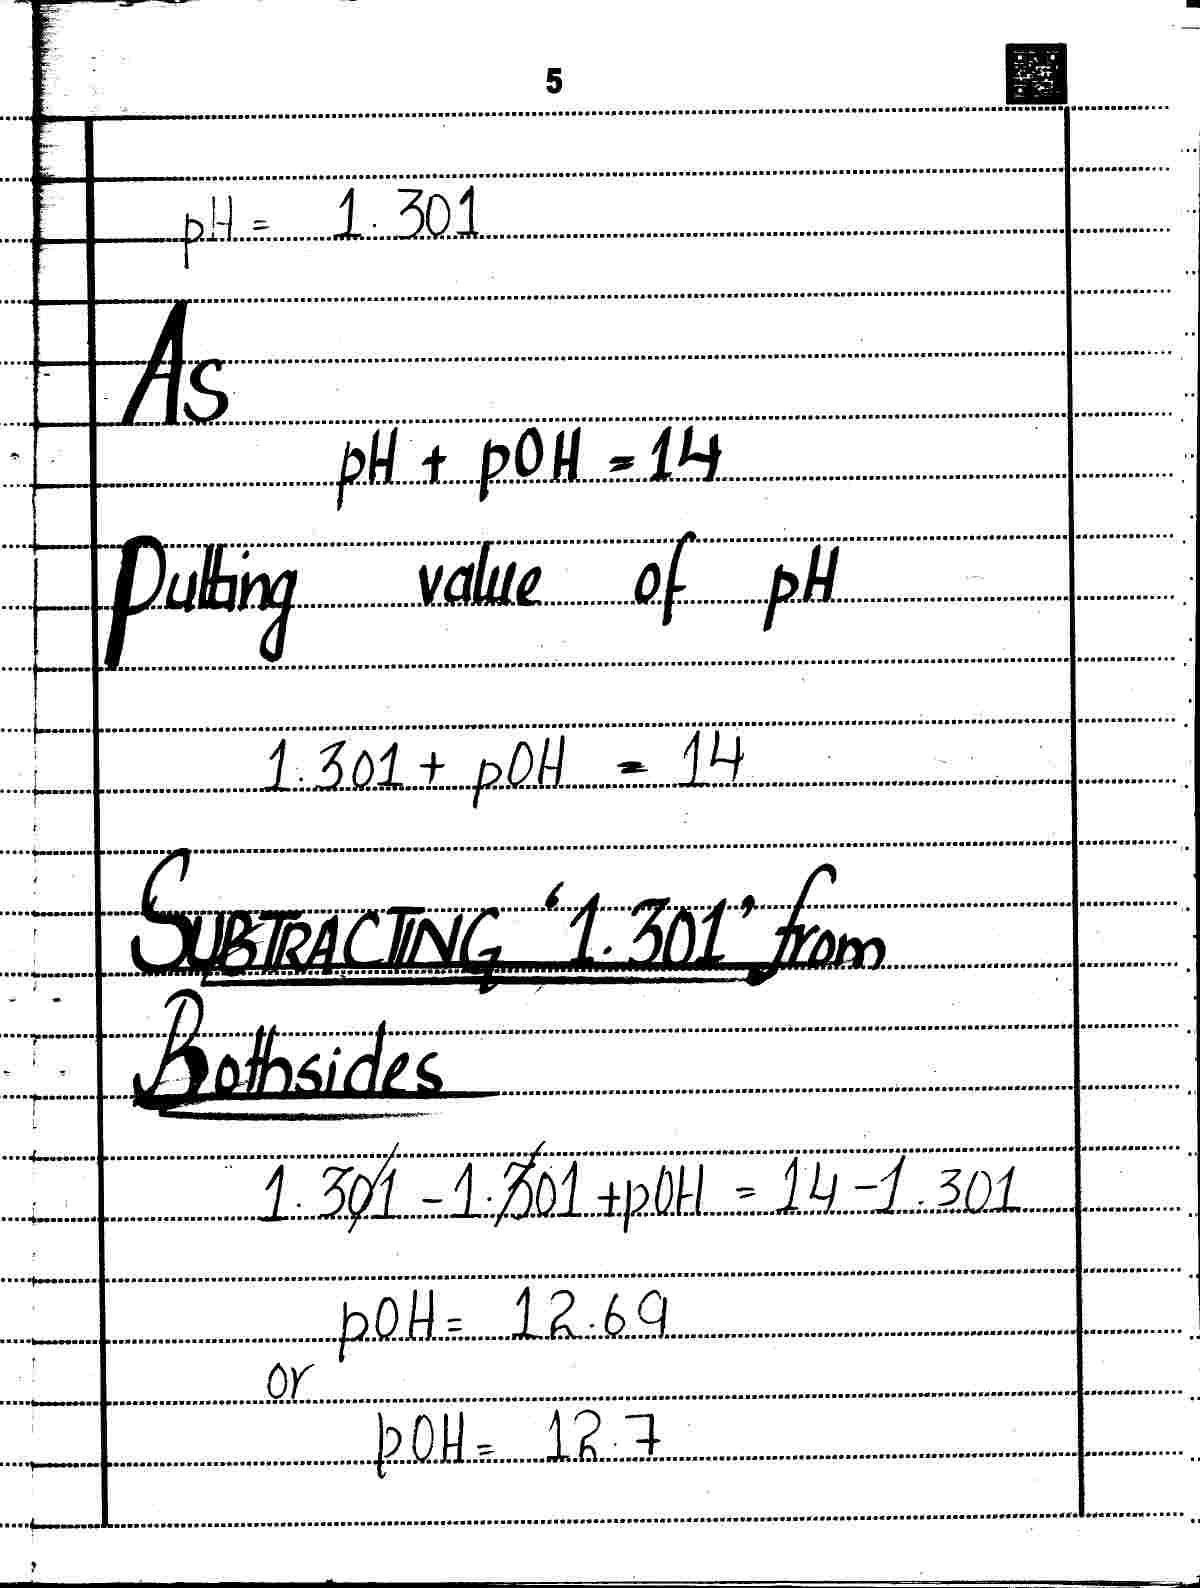 5
pH = 1.301
As
pH + pOH = 14
Putting value of pH
1.301 + pOH = 14
SUBTRACTING '1.301' from
Bothsides
1.301 - 1.301 + pOH = 14 - 1.301
pOH = 12.69
or
pOH = 12.7